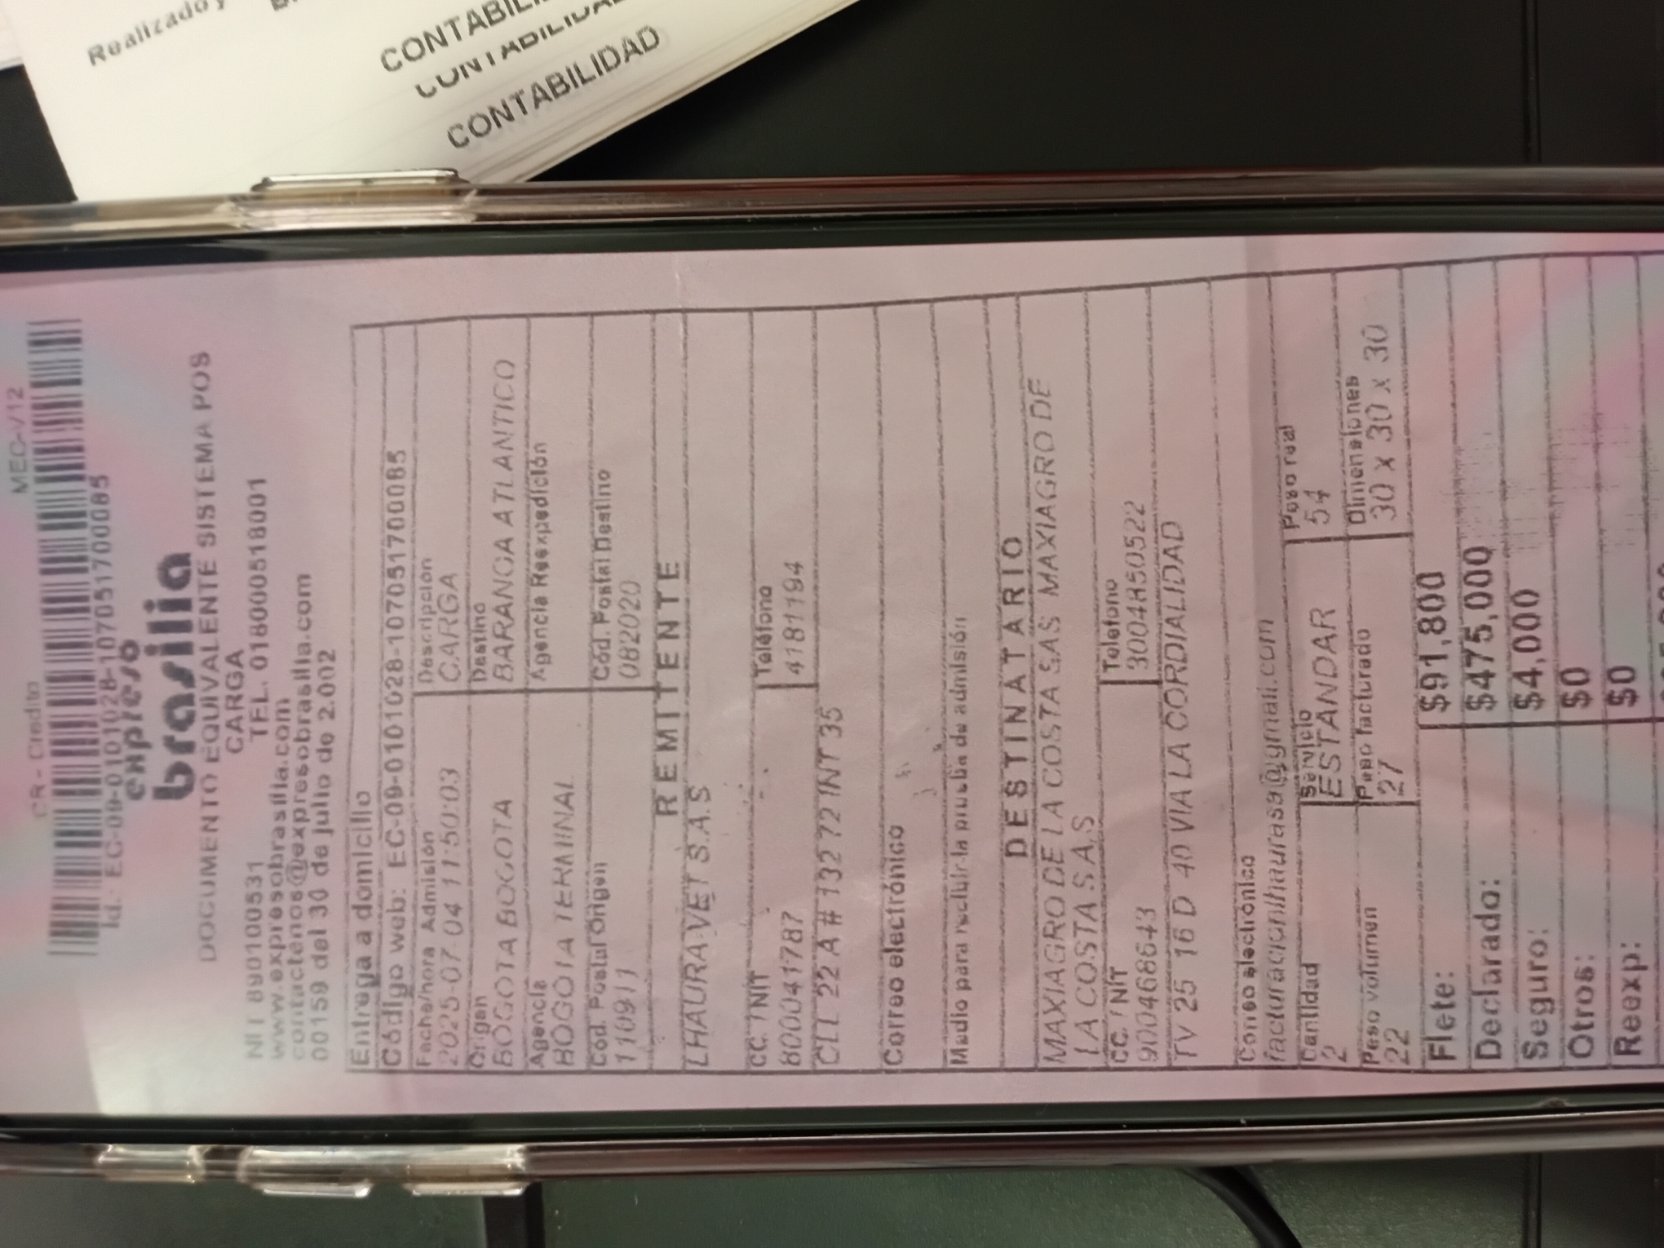 Realizado y
CONTABILI
CONTABILIDA
CONTABILIDAD
MEC-V12
CR - Credito
Id.: EC-09-0101028-1070517000­85
expreso
brasilia
DOCUMENTO EQUIVALENTE SISTEMA POS
CARGA
NIT 890100531 TEL. 018000518001
www.expresobrasilia.com
contactenos@expresobrasilia.com
00159 del 30 de julio de 2.002
Entrega a domicilio
Código web: EC-09-0101028-107051700085
Fecha/hora Admisión Descripción
2025-07-04 11:50:03 CARGA
Origen Destino
BOGOTA BOGOTA BARANOA ATLANTICO
Agencia Agencia Reexpedición
BOGOTA TERMINAL
Cód. Postal Origen Cód. Postal Destino
110911 082020
REMITENTE
LHAURA VET S.A.S
CC. / NIT Teléfono
800041787 4181194
CLL 22 A # 132 72 INT 35
Correo electrónico
Medio para recibir la prueba de admisión
DESTINATARIO
MAXIAGRO DE LA COSTA SAS MAXIAGRO DE
LA COSTA S.A.S
CC. / NIT Telefono
900468643 3004850522
TV 25 16 D 40 VIA LA CORDIALIDAD
Correo electrónico
facturacionlhauras9@gmail.com
Cantidad Servicio Peso real
2 ESTANDAR 54
Peso volumen Peso facturado Dimensiones
22 27 30 x 30 x 30
Flete: $91,800
Declarado: $475,000
Seguro: $4,000
Otros: $0
Reexp: $0